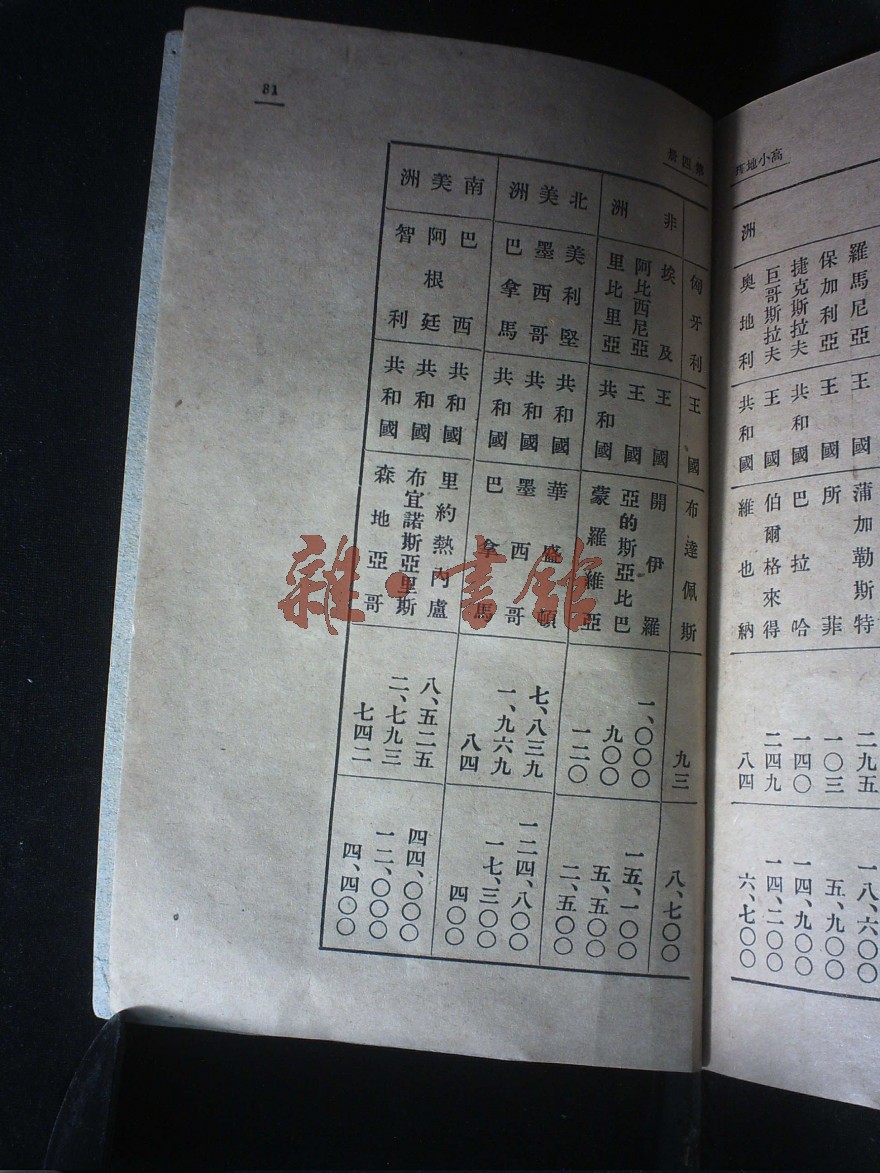 高小地
羅馬尼亞 王國 蒲加勒斯特 二九五 一八、六〇〇
保加利亞 王國 所菲 一〇三 五、九〇〇
捷克斯拉夫 共和國 巴拉哈 一四〇 一四、九〇〇
巨哥斯拉夫 王國 伯爾格來得 二四九 一四、二〇〇
洲
奧地利 共和國 維也納 八四 六、七〇〇
第四册
匈牙利 王國 布達佩斯 九三 八、七〇〇
非洲
埃及 王國 開伊羅 一、〇〇〇 一五、一〇〇
阿比西尼亞 王國 亞的斯亞比巴 九〇〇 五、五〇〇
里比里亞 共和國 蒙羅維亞 一二〇 二、五〇〇
北美洲
美利堅 共和國 華盛頓 七、八三九 一二四、八〇〇
墨西哥 共和國 墨西哥 一、九六九 一七、三〇〇
巴拿馬 共和國 巴拿馬 八四 四〇〇
南美洲
巴西 共和國 里約熱內盧 八、五二五 四四、〇〇〇
阿根廷 共和國 布宜諾斯亞里斯 二、七九三 一二、〇〇〇
智利 共和國 森地亞哥 七四二 四、四〇〇
81
雜·書館